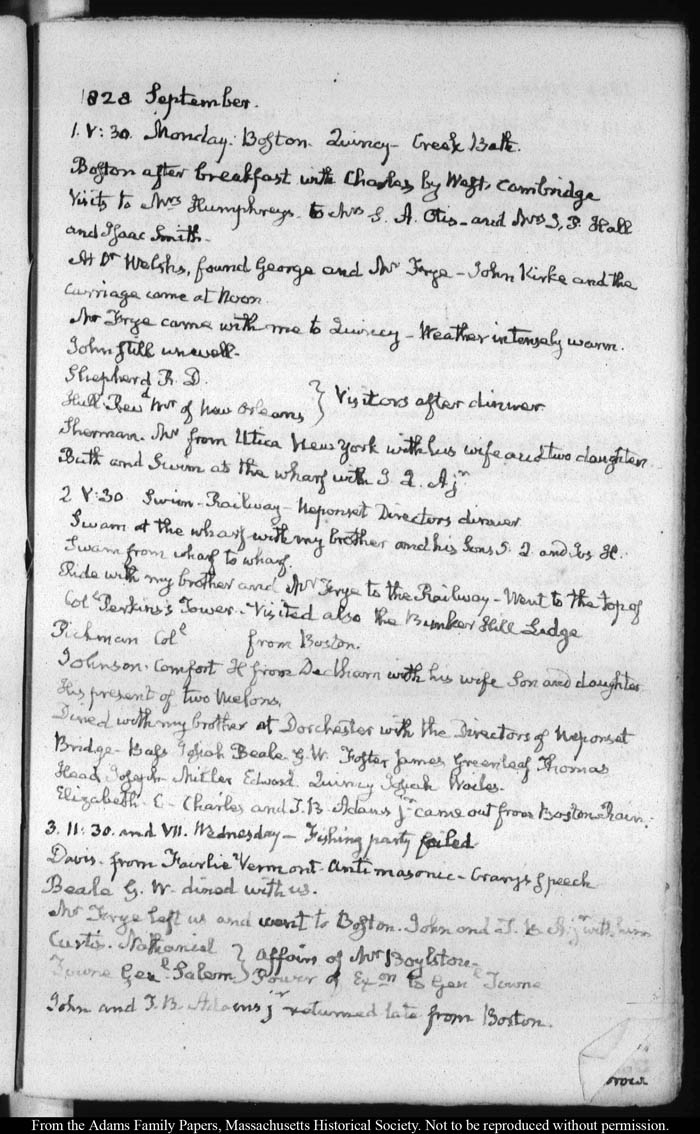 1828 September.
1. V:30. Monday. Boston. Quincy - Creek Bath.
Boston after breakfast with Charles by West Cambridge
Visits to Mrs Humphreys - to Mrs S. A. Otis - and Mrs S, P. Hall
and Isaac Smith -
At Dr Welshs, found George and Mr Frye - John Kirke and the
carriage came at Noon
Mr Frye came with me to Quincy - Weather intensely warm.
John still unwell -
Shepherd R. D.
Hull Revd Mr of New Orleans } Visitors after dinner
Sherman. Mr from Utica New York with his wife and two daughters
Bath and Swim at the wharf with I. H. Ajr
2 V:30. Swim - Railway - Neponset Directors dinner
Swam at the wharf with my brother and his Sons and H.
Swam from wharf to wharf.
Ride with my brother and Mr Frye to the Railway - Went to the top of
Cole Perkins's Tower. Visited also the Bunker Hill Ledge
Pickman Cole from Boston.
Johnson. Comfort H from Dedham with his wife Son and daughter
His present of two Melons.
Dined with my brother at Dorchester with the Directors of Neponset
Bridge - Bass Josiah Beale. G. W. Foster James Greenleaf Thomas
Head Joseph Miller Edward Quincy Josiah
Elizabeth. C - Charles and T. B. Adams jr came out from Boston Rain.
3. II:30. and VII. Wednesday - Fishing party failed
Davis. from Fairlie Vermont - Antimasonic - Crary's Speech
Beale G. W. dined with us.
Mr Frye left us and went to Boston. John and T. B. Ajr with him
Curtis. Nathaniel } Affairs of Mr Boylston -
Towne Genl Salem } Power of Exon to Genl Towne
John and T. B. Adams jr returned late from Boston.
From the Adams Family Papers, Massachusetts Historical Society. Not to be reproduced without permission.